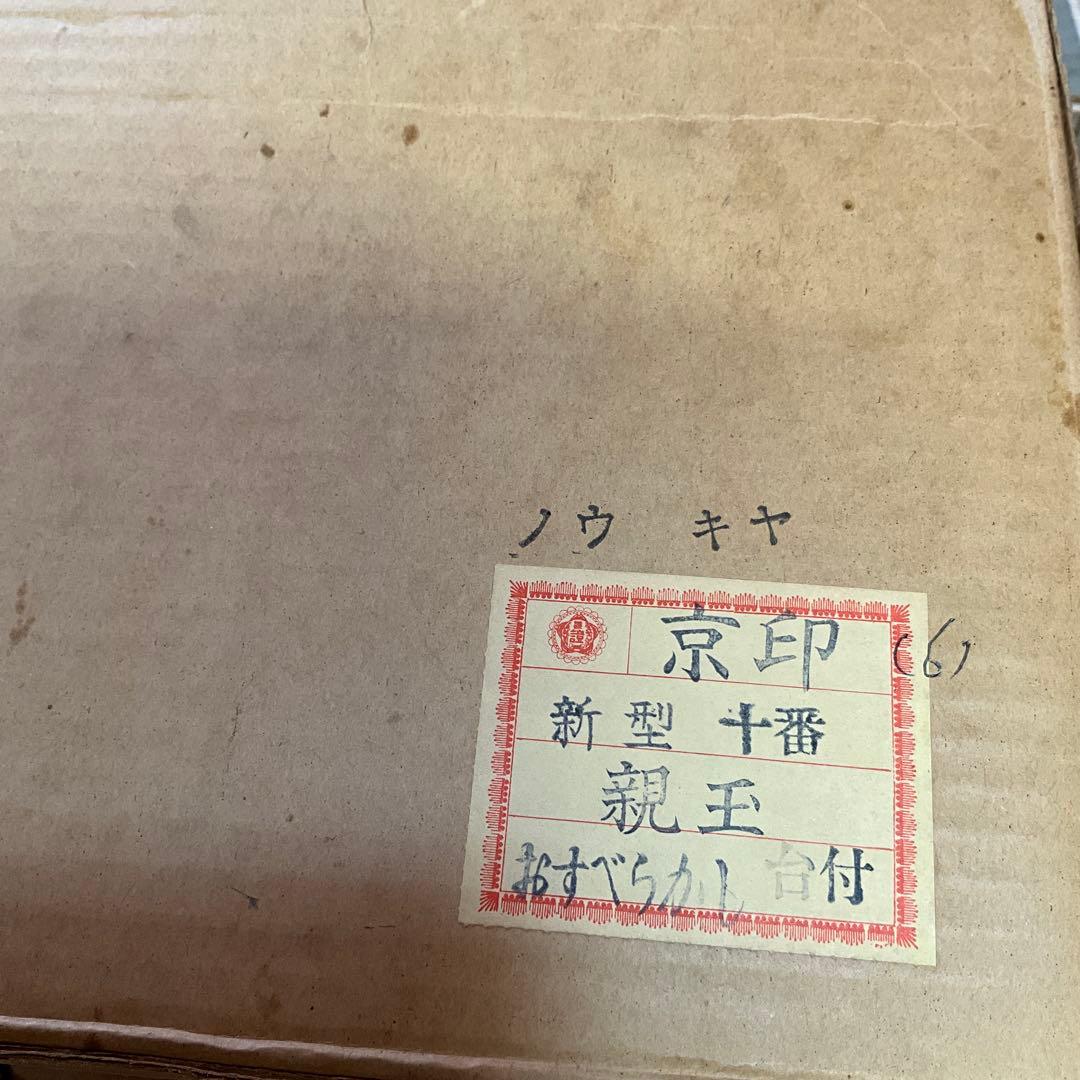 ノウ キヤ
京印 (6)
新型 十番
親王
おすべらかし 台付